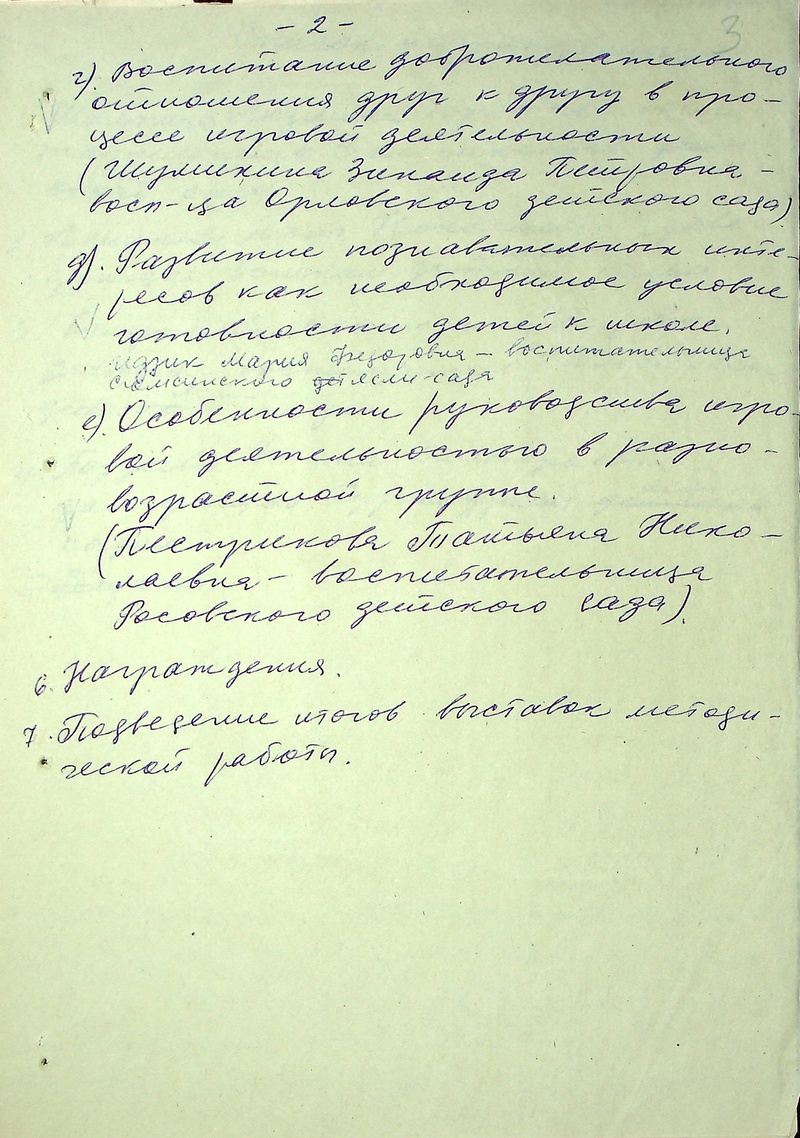 - 2 -
3
г). Воспитание доброжелательного
отношения друг к другу в про-
цессе игровой деятельности
(Шумихина Зинаида Петровна -
восп-ца Орловского детского сада)
д). Развитие познавательных инте-
ресов как необходимое условие
готовности детей к школе.
Идзик Мария Федоровна - воспитательница
ясли-сада
е) Особенности руководства игро-
вой деятельностью в разно-
возрастной группе.
(Пестрикова Татьяна Нико-
лаевна - воспитательница
Росовского детского сада).
6. Награждения.
7. Подведение итогов выставок методи-
ческой работы.